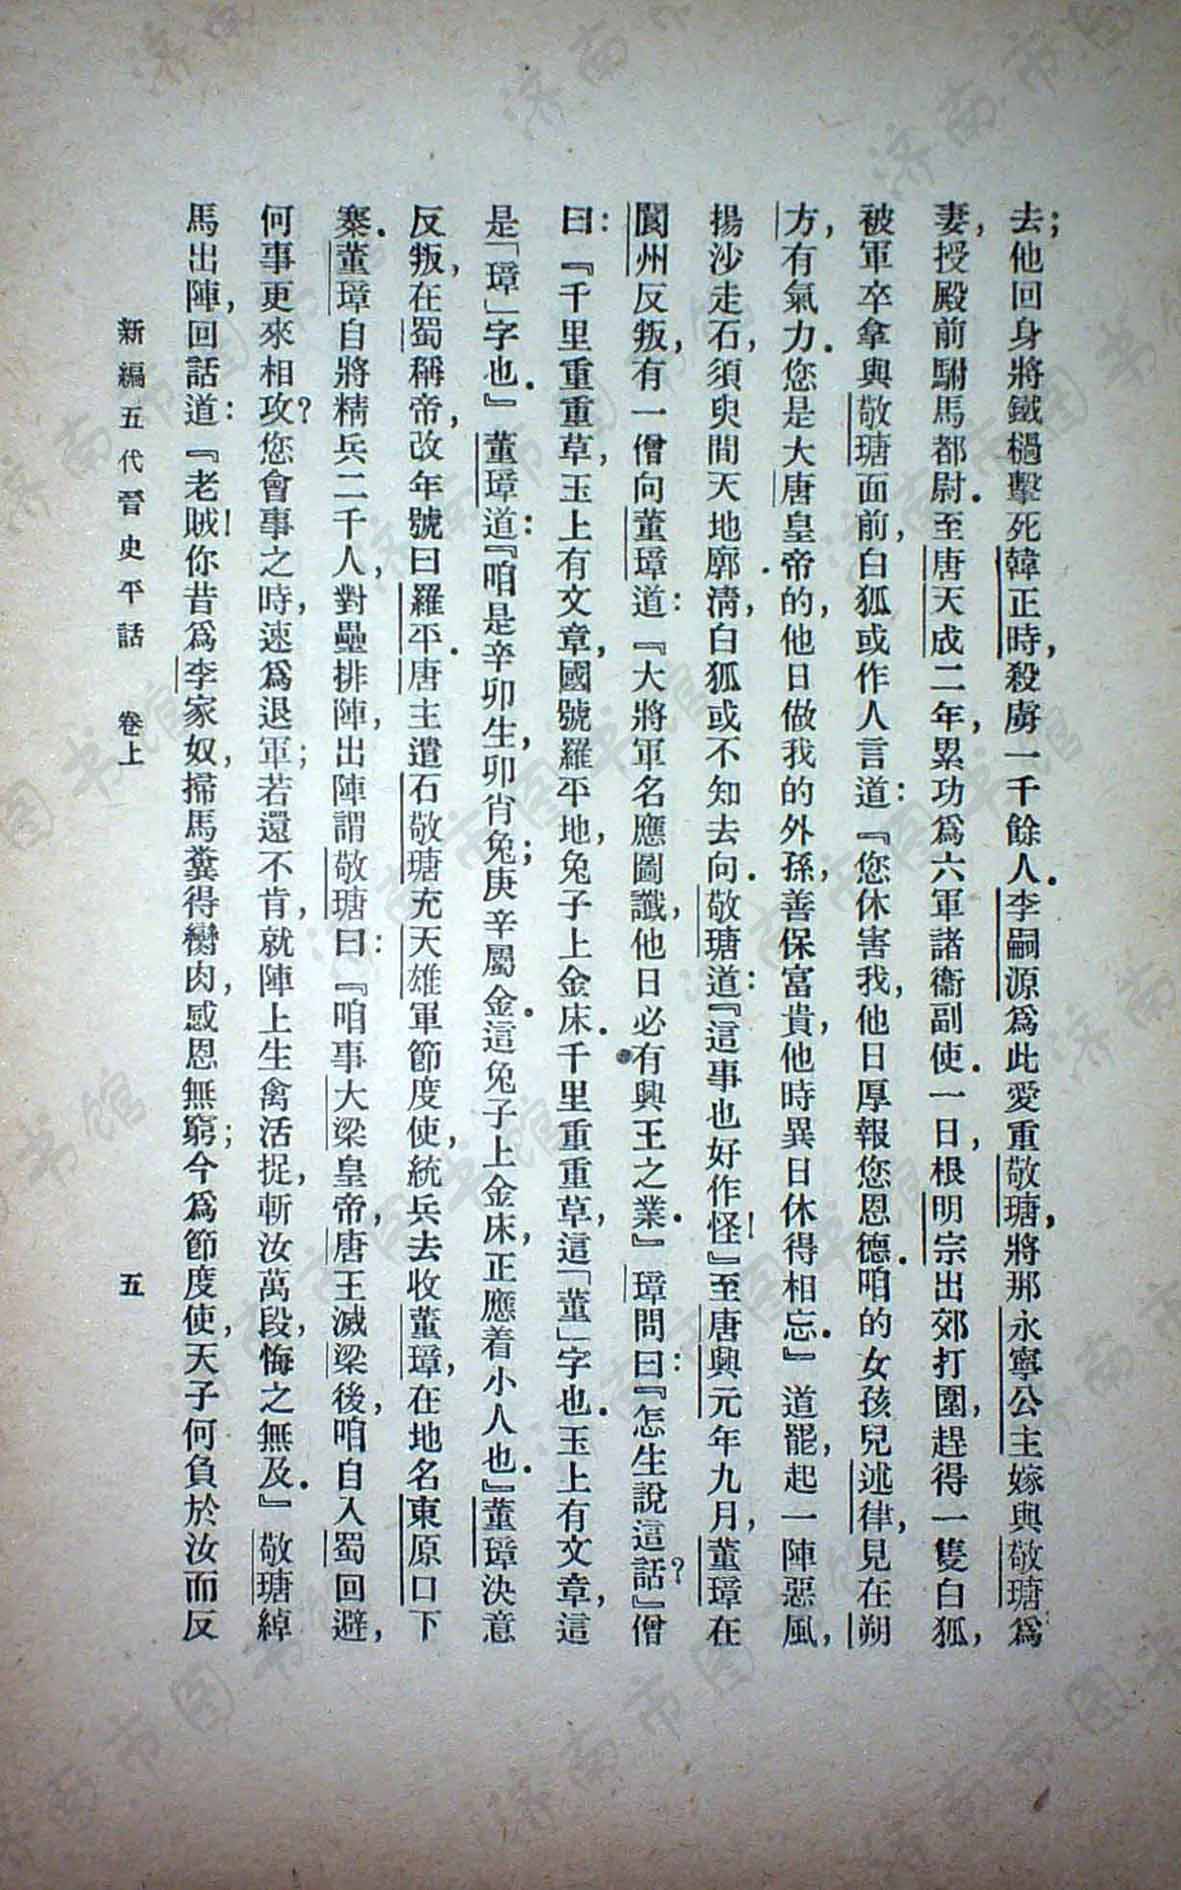 去；他回身將鐵檛擊死韓正時，殺虜一千餘人．李嗣源爲此愛重敬瑭，將那永寧公主嫁與敬瑭爲
妻，授殿前駙馬都尉．至唐天成二年，累功爲六軍諸衞副使．一日，根明宗出郊打圍，趕得一隻白狐，
被軍卒拿與敬瑭面前，白狐或作人言道：『您休害我，他日厚報您恩德．咱的女孩兒述律，見在朔
方，有氣力．您是大唐皇帝的，他日做我的外孫，善保富貴，他時異日休得相忘．』道罷，起一陣惡風，
揚沙走石，須臾間天地廓淸，白狐或不知去向．敬瑭道：『這事也好作怪！』至唐興元年九月，董璋在
閬州反叛，有一僧向董璋道：『大將軍名應圖讖，他日必有興王之業．』璋問曰：『怎生說這話？』僧
曰：『千里重重草，玉上有文章，國號羅平地，兔子上金床．千里重重草，這「董」字也．玉上有文章，這
是「璋」字也．』董璋道：『咱是辛卯生，卯肖兔；庚辛屬金．這兔子上金床，正應着小人也．』董璋決意
反叛，在蜀稱帝，改年號曰羅平．唐主遣石敬瑭充天雄軍節度使，統兵去收董璋，在地名東原口下
寨．董璋自將精兵二千人，對壘排陣，出陣謂敬瑭曰：『咱事大梁皇帝，唐王滅梁後，咱自入蜀回避，
何事更來相攻？您會事之時，速爲退軍；若還不肯，就陣上生禽活捉，斬汝萬段，悔之無及．』敬瑭綽
馬出陣，回話道：『老賊！你昔爲李家奴，掃馬糞得臠肉，感恩無窮；今爲節度使，天子何負於汝而反
新編五代晉史平話　卷上　五
济南市图书馆